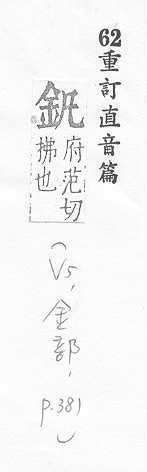 62重訂直音篇
府范切
拂也
(V5, 金部, p.381)